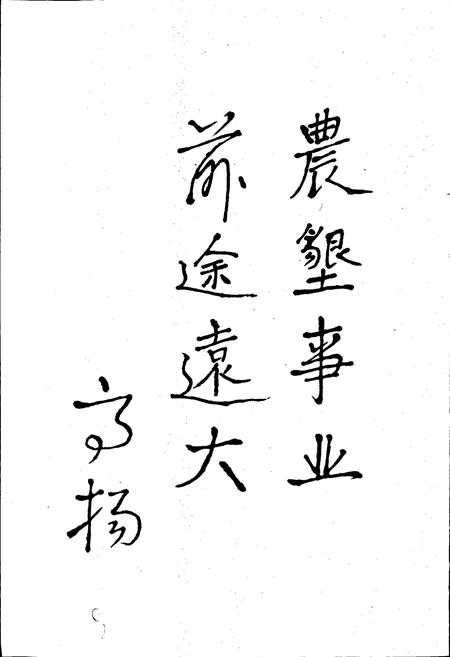 農墾事业
前途遠大
高扬